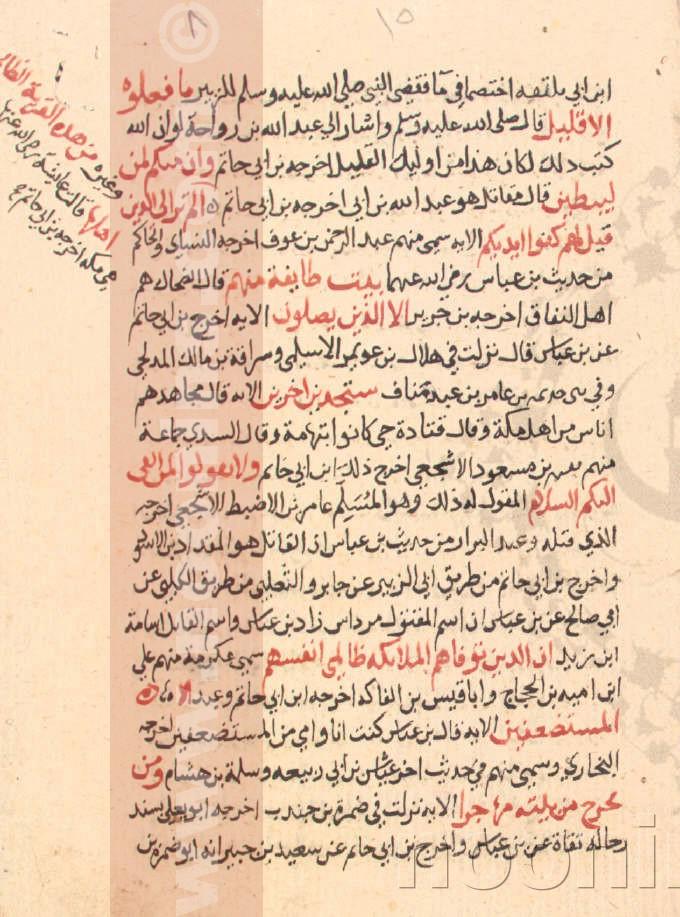 ٨
١٥
ابن ابي بلتعه اختصما في ما فقضي النبي صلي الله عليه وسلم للزبير ما فعلوه
الا قليل قال صلى الله عليه وسلم واشار الي عبد الله بن رواحة لو ان الله
كتب ذلك لكان هذا من اوليك القليل اخرجه بن ابي حاتم وان منكم لمن
ليبطين قال مقاتل هو عبد الله بن ابي اخرجه بن ابي حاتم الم تر الي الذين
قيل لهم كفوا ايديكم الايه سمي منهم عبد الرحمن بن عوف اخرجه النساي والحاكم
من حديث بن عباس رضي الله عنهما بيت طايفة منهم قال الضحاك هم
اهل النفاق اخرجه بن جرير الا الذين يصلون الايه اخرج بن ابي حاتم
عن بن عباس قال نزلت في هلال بن عويمر الاسلمي وسراقة بن مالك المدلجي
وفي بني بن عامر بن عبد مناف ستجدون اخرين الايه قال مجاهد هم
اناس من اهل مكة وقال قتادة حي كانوا بتهامة وقال السدي جماعة
منهم نعيم بن مسعود الاشجعي اخرج ذلك ابن ابي حاتم ولا تقولوا لمن القي
اليكم السلام المقول له ذلك وهو المسلم عامر بن الاضبط الاشجعي اخرجه
الذي قتله وعند البزار من حديث بن عباس ان القاتل هو المقداد بن الاسود
واخرج بن ابي حاتم من طريق ابي الزبير عن جابر والثعلبي من طريق الكلبي عن
ابي صالح عن بن عباس ان اسم المقتول مرداس زاد بن عباس واسم القاتل اسامة
ابن زيد ان الذين توفاهم الملايكة ظالمي انفسهم سمي عكرمة منهم علي
ابن اميه بن الحجاج وابا قيس بن الفاكه اخرجه ابن ابي حاتم وعبد الا
المستضعفين الايه قال بن عباس كنت انا وامي من المستضعفين اخرجه
البخاري وسمي منهم في حديث اخر عياش بن ابي ربيعه وسلمة بن هشام ومن
يخرج من بيته مهاجرا الايه نزلت في ضمرة بن جندب اخرجه ابو يعلي بسند
رجاله ثقاة عن بن عباس واخرج بن ابي حاتم عن سعيد بن جبير انه ابو ضمرة بن
وغيره من هذه القرية الظالم
اهلها قالت عايشة رضي الله عنها
هي مكه اخرجه بن ابي حاتم
©